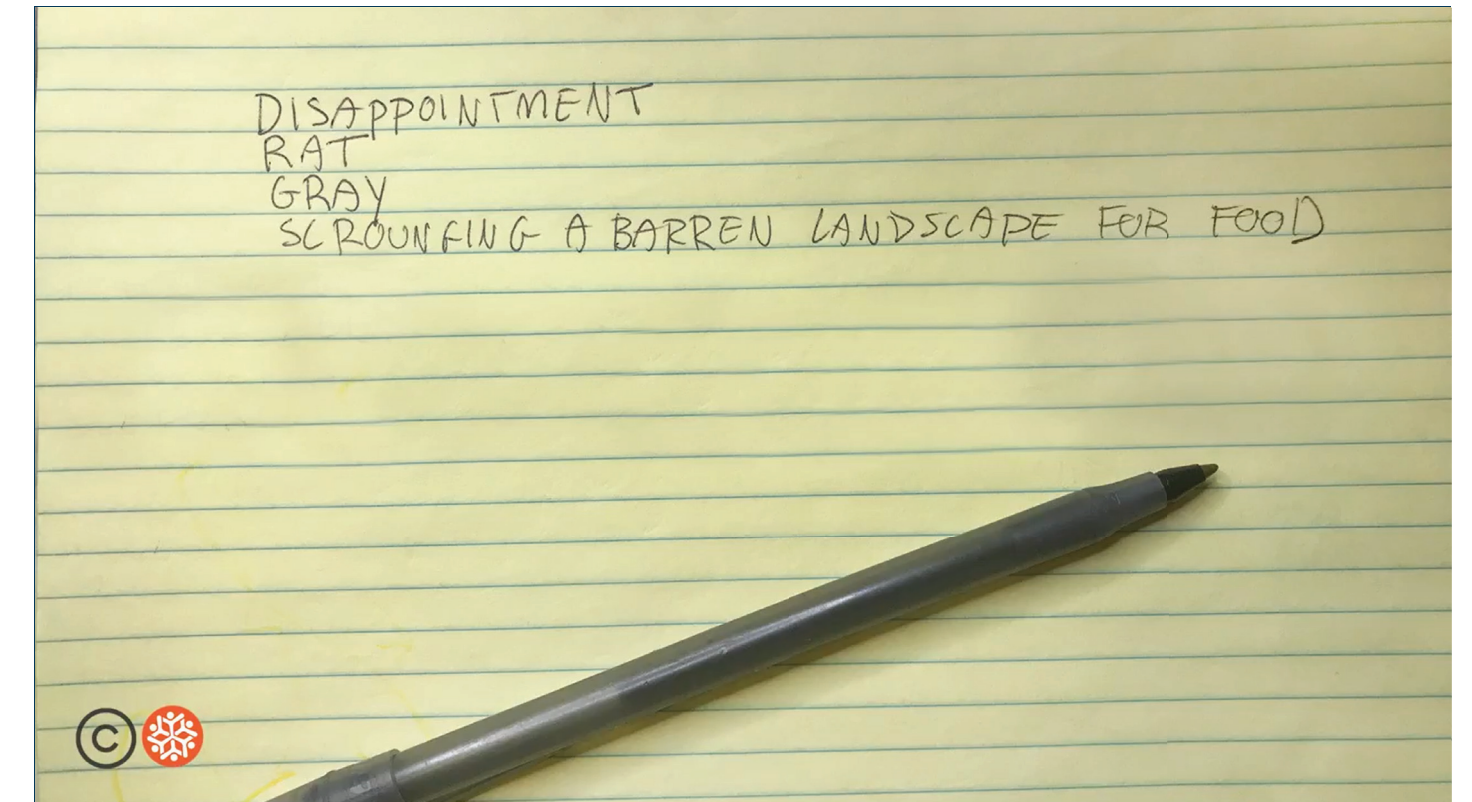 DISAPPOINTMENT
RAT
GRAY
SCROUNGING A BARREN LANDSCAPE FOR FOOD
©